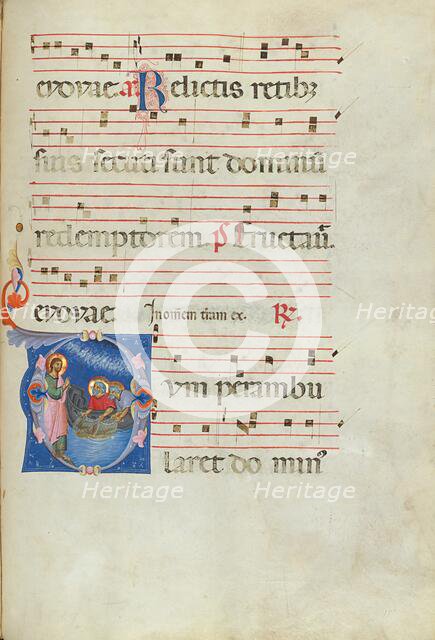 evovae. a Relictis retib₃
suis secuti sunt dominū
redemptorem. ps Eructaū.
evovae. In omnem terram ex. R.
um perambu
laret do min
Heritage
Heritage
Heritage
Heritage
Heritage
Heritage